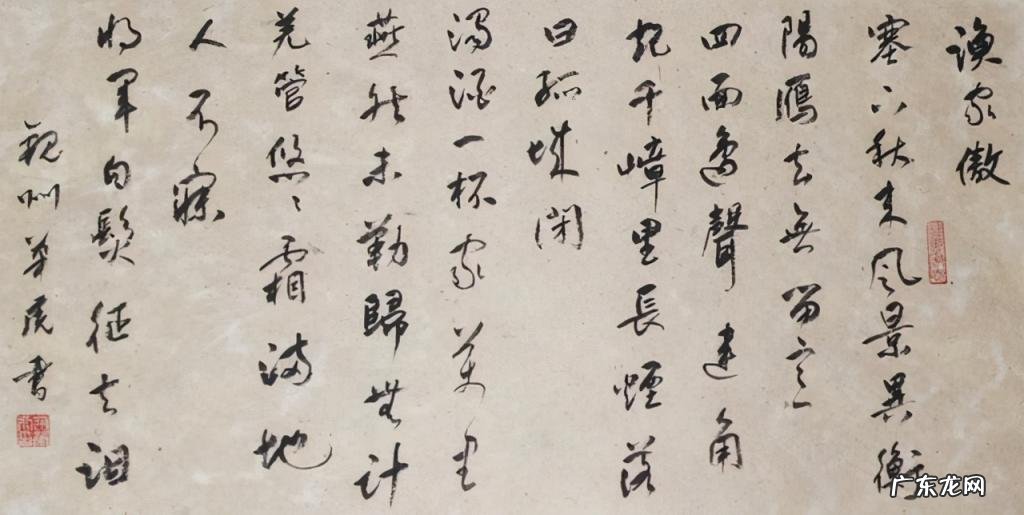 渔家傲
塞下秋来风景異衡
陽鴈去無留意
四面邊聲連角
起千嶂里長煙落
日孤城闭
濁酒一杯家萬里
燕然未勒歸無计
羌管悠々霜满地
人不寐
将军白髮征夫泪
書
广东龙网